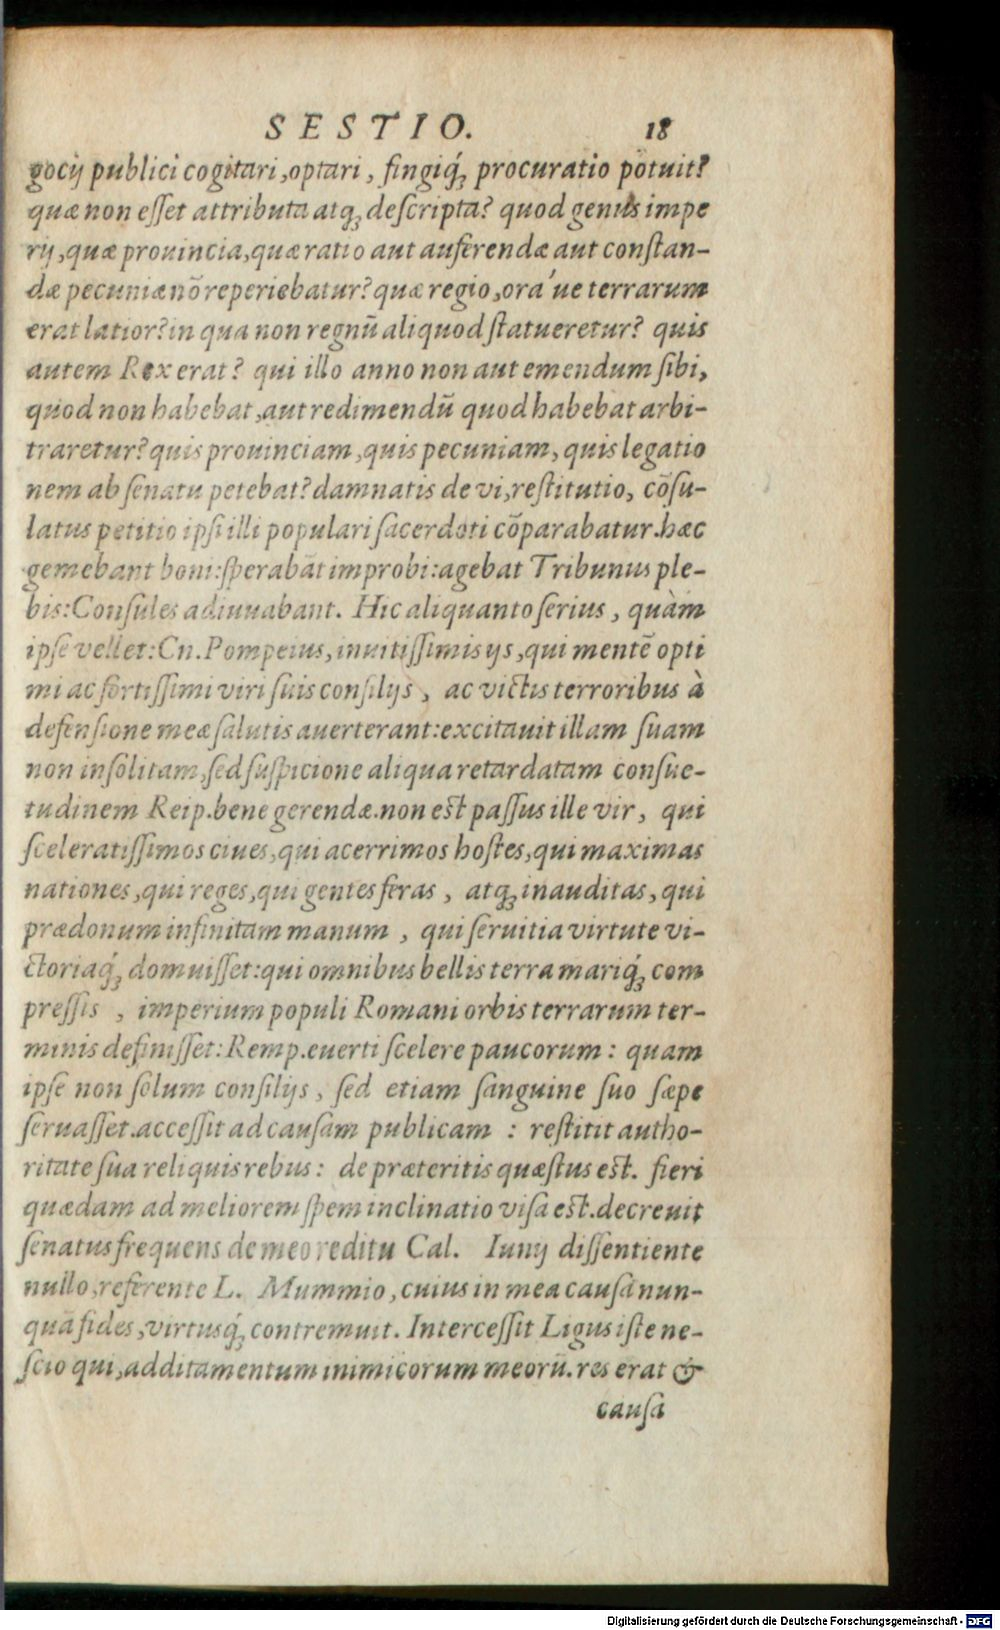 SESTIO. 18
gocij publici cogitari, optari, fingiq́; procuratio potuit?
quæ non esset attributa atq; descripta? quod genus impe
rij, quæ prouincia, quæ ratio aut auferendæ aut constan-
dæ pecuniæ nõ reperiebatur? quæ regio, ora´ue terrarum
erat latior? in qua non regnũ aliquod statueretur? quis
autem Rex erat? qui illo anno non aut emendum sibi,
quod non habebat, aut redimendũ quod habebat arbi-
traretur? quis prouinciam, quis pecuniam, quis legatio
nem ab senatu petebat? damnatis de vi, restitutio, cõsu-
latus petitio ipsi illi populari sacerdoti cõparabatur. hæc
gemebant boni: sperabãt improbi: agebat Tribunus ple-
bis: Consules adiuuabant. Hic aliquanto serius, quàm
ipse vellet: Cn. Pompeius, inuitissimis ijs, qui mentẽ opti
mi ac fortissimi viri suis consilijs, ac victis terroribus à
defensione meæ salutis auerterant: excitauit illam suam
non insolitam, sed suspicione aliqua retardatam consue-
tudinem Reip. bene gerendæ. non est passus ille vir, qui
sceleratissimos ciues, qui acerrimos hostes, qui maximas
nationes, qui reges, qui gentes feras, atq; inauditas, qui
prædonum infinitam manum, qui seruitia virtute vi-
ctoriaq́; domuisset: qui omnibus bellis terra mariq́; com
pressis, imperium populi Romani orbis terrarum ter-
minis definisset: Remp. euerti scelere paucorum: quam
ipse non solum consilijs, sed etiam sanguine suo sæpe
seruasset. accessit ad causam publicam: restitit autho-
ritate sua reliquis rebus: de præteritis quæstus est. fieri
quædam ad meliorem spem inclinatio visa est. decreuit
senatus frequens de meo reditu Cal. Iunij dissentiente
nullo, referente L. Mummio, cuius in mea causa nun-
quã fides, virtusq́; contremuit. Intercessit Ligus iste ne-
scio qui, additamentum inimicorum meorũ. res erat &
causa
Digitalisierung gefördert durch die Deutsche Forschungsgemeinschaft - DFG